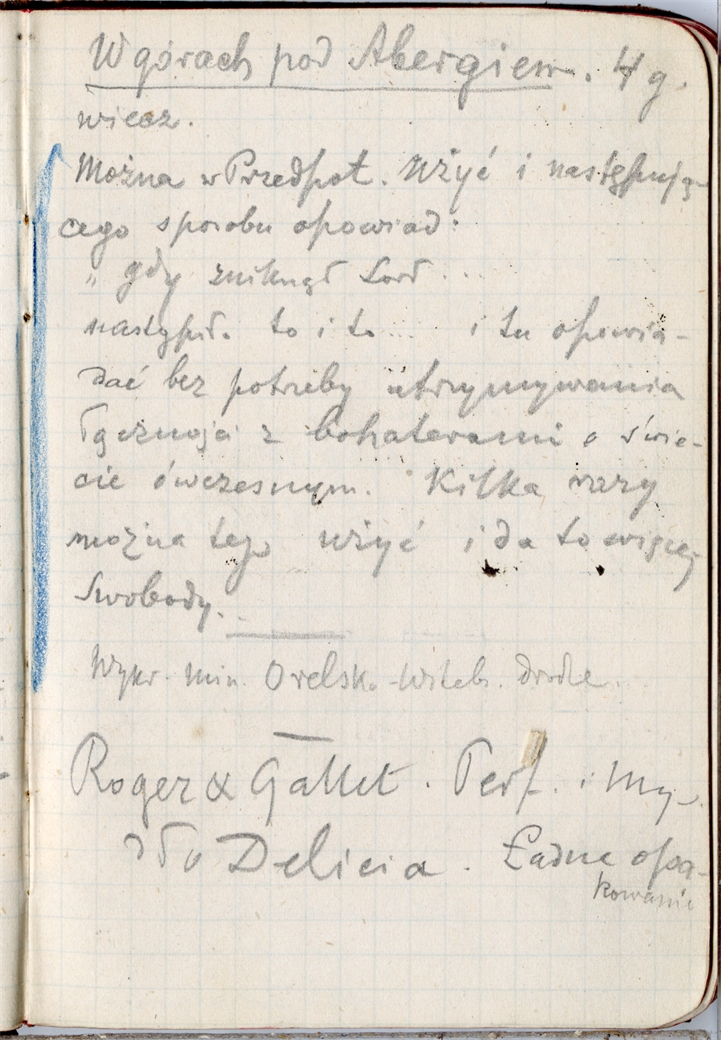 W górach pod Abergiem. 4 g.
wiecz.
Można w Przedpot. użyć i następują-
cego sposobu opowiad:
„ gdy zniknął Lord ....
nastąpił. to i to .... i tu opowia-
dać bez potrzeby utrzymywania
łączności z bohaterami o świe-
cie ówczesnym. Kilka razy
można tego użyć i da to więcej
swobody.
Wykr. min. Orelsko-Witebs. drodze.
Roger & Gallet. Perf. i my-
dło Delicia. Ładne opa-
kowanie